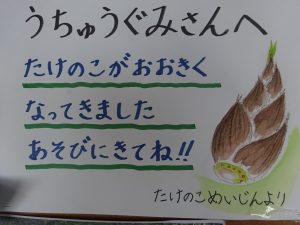 うちゅうぐみさんへ
たけのこがおおきく
なってきました
あそびにきてね!!
たけのこめいじんより